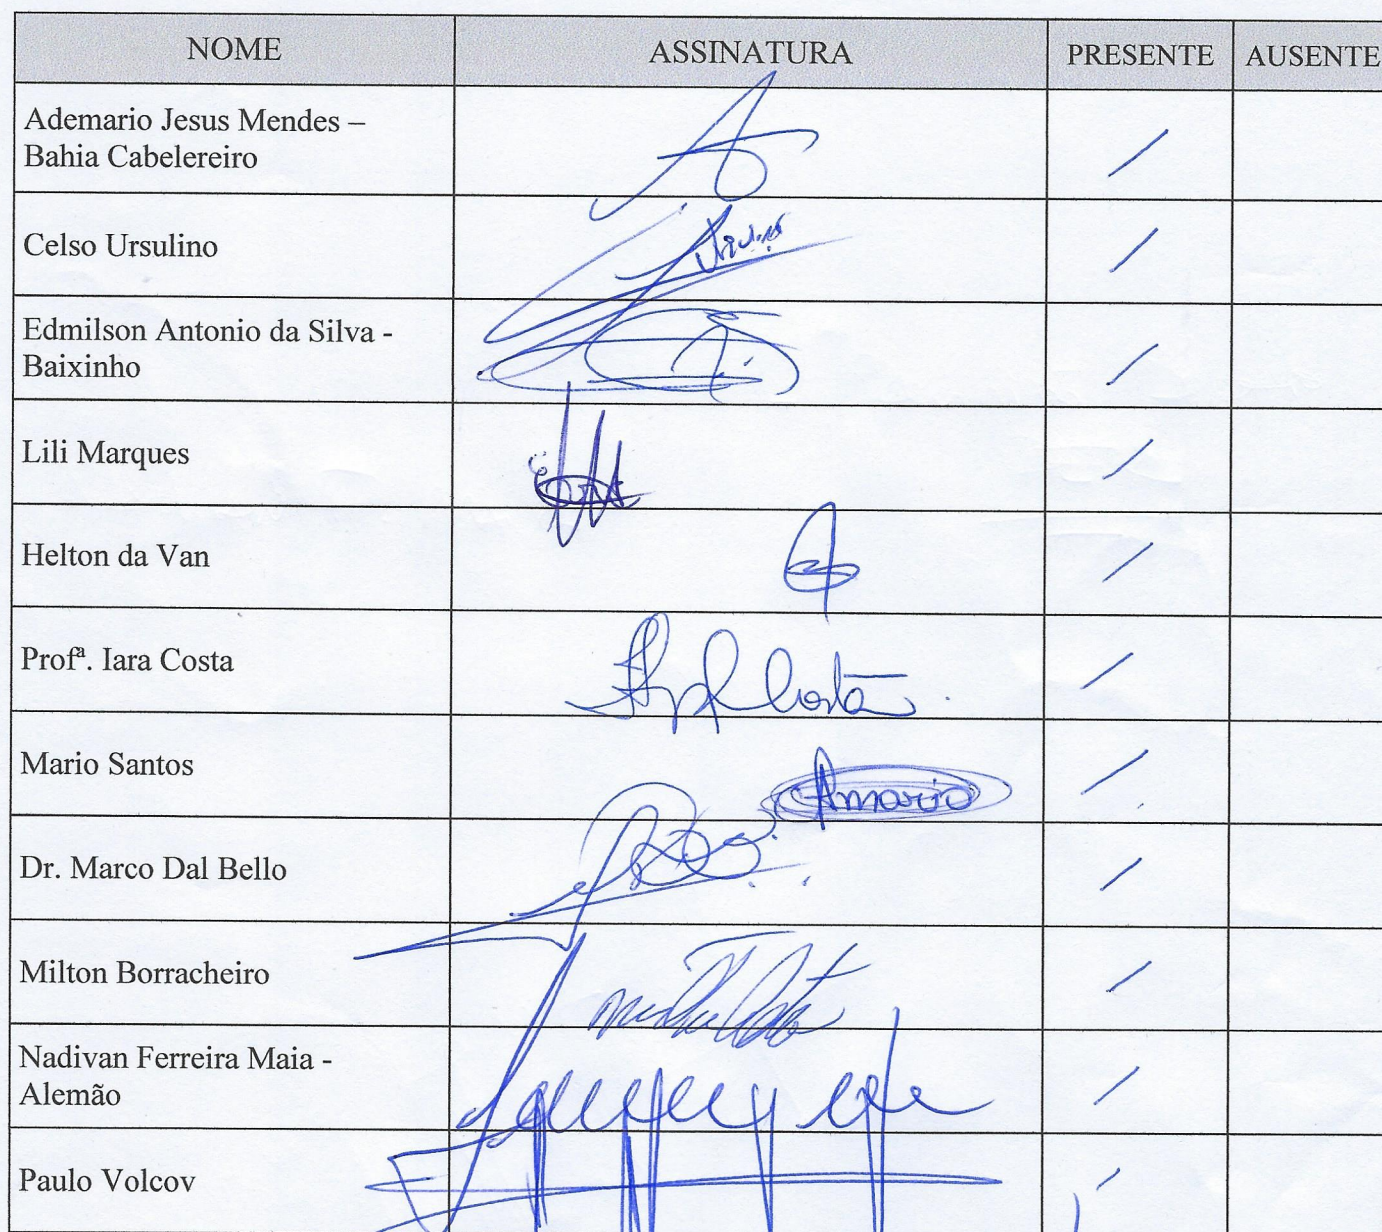 NOME ASSINATURA PRESENTE AUSENTE
Ademario Jesus Mendes –
Bahia Cabelereiro
Celso Ursulino
Edmilson Antonio da Silva -
Baixinho
Lili Marques
Helton da Van
Profª. Iara Costa
Costa
Mario Santos
Amario
Dr. Marco Dal Bello
Milton Borracheiro
Nadivan Ferreira Maia -
Alemão
Paulo Volcov